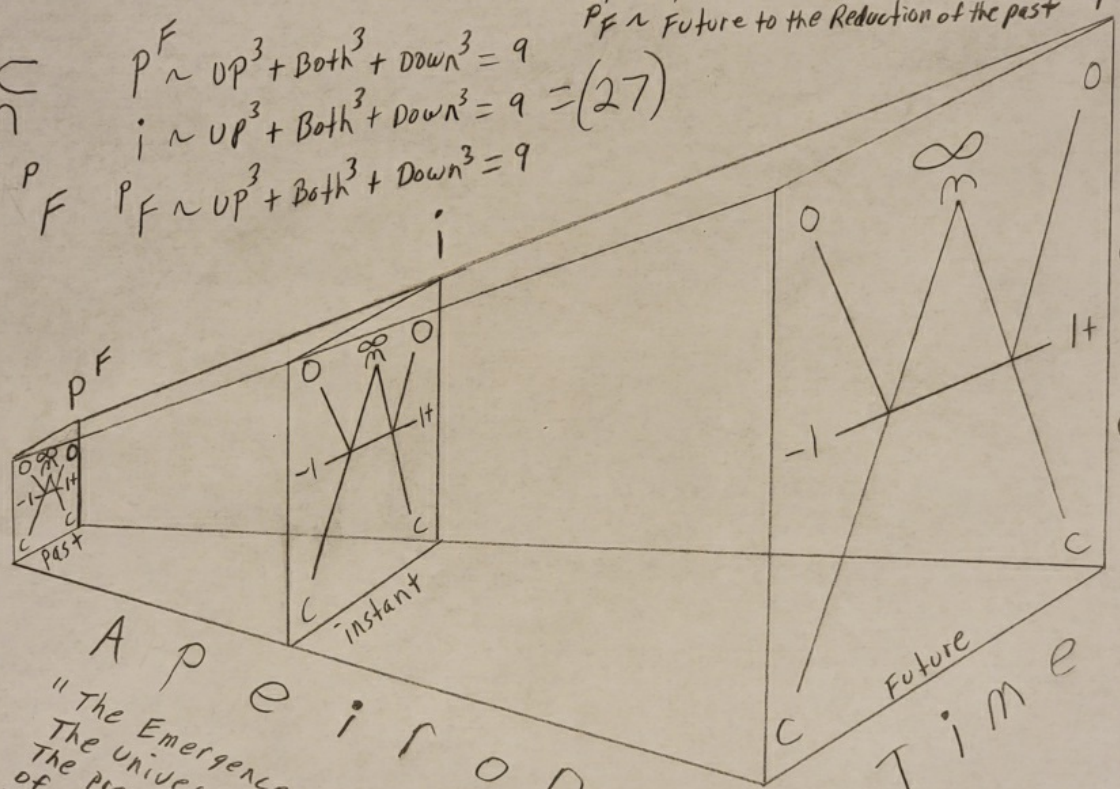 P_F ~ Future to the Reduction of the past
P^F ~ UP^3 + Both^3 + Down^3 = 9
i ~ UP^3 + Both^3 + Down^3 = 9 = (27)
P_F P_F ~ UP^3 + Both^3 + Down^3 = 9
i
P^F
O ∞ O
m
-1 1+
C C
past
O ∞ O
m
-1 1+
C C
instant
O ∞ O
m
-1 1+
C C
Future
Apeiron
Time
"The Emergence
The
The
of